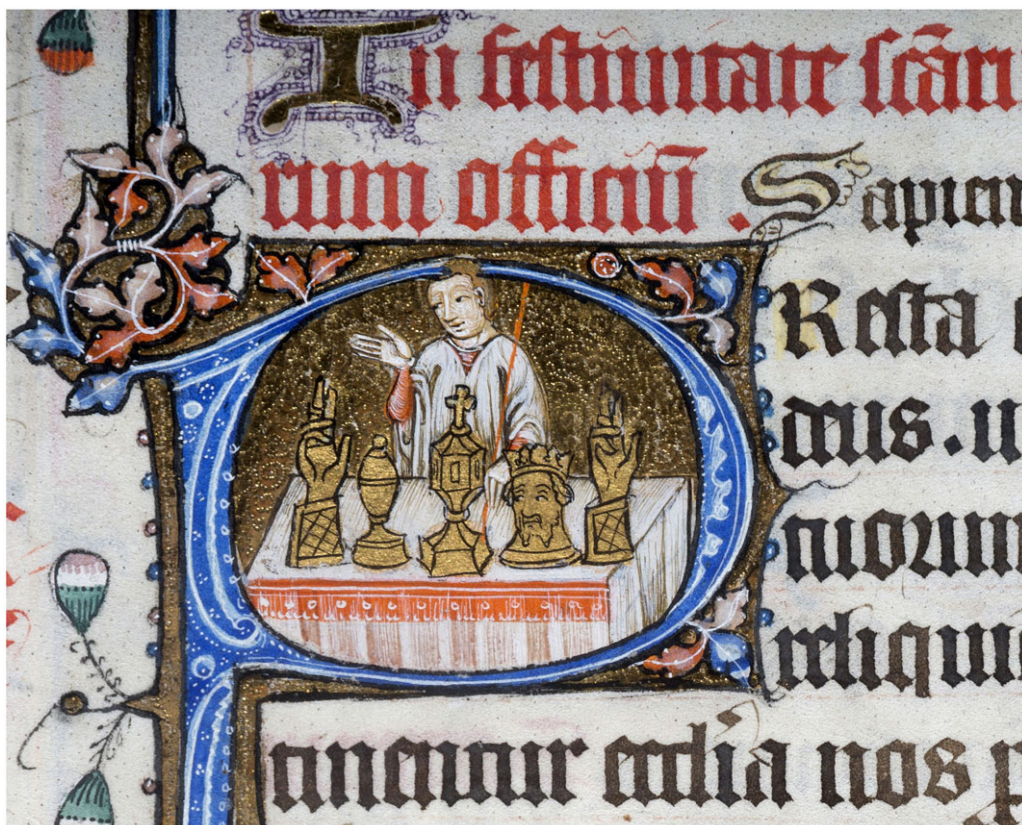 In festiuitate scār
rum officiū . Sapien
PResta
deus . u
tuorum
reliquie
tinentur ecclīa nos p